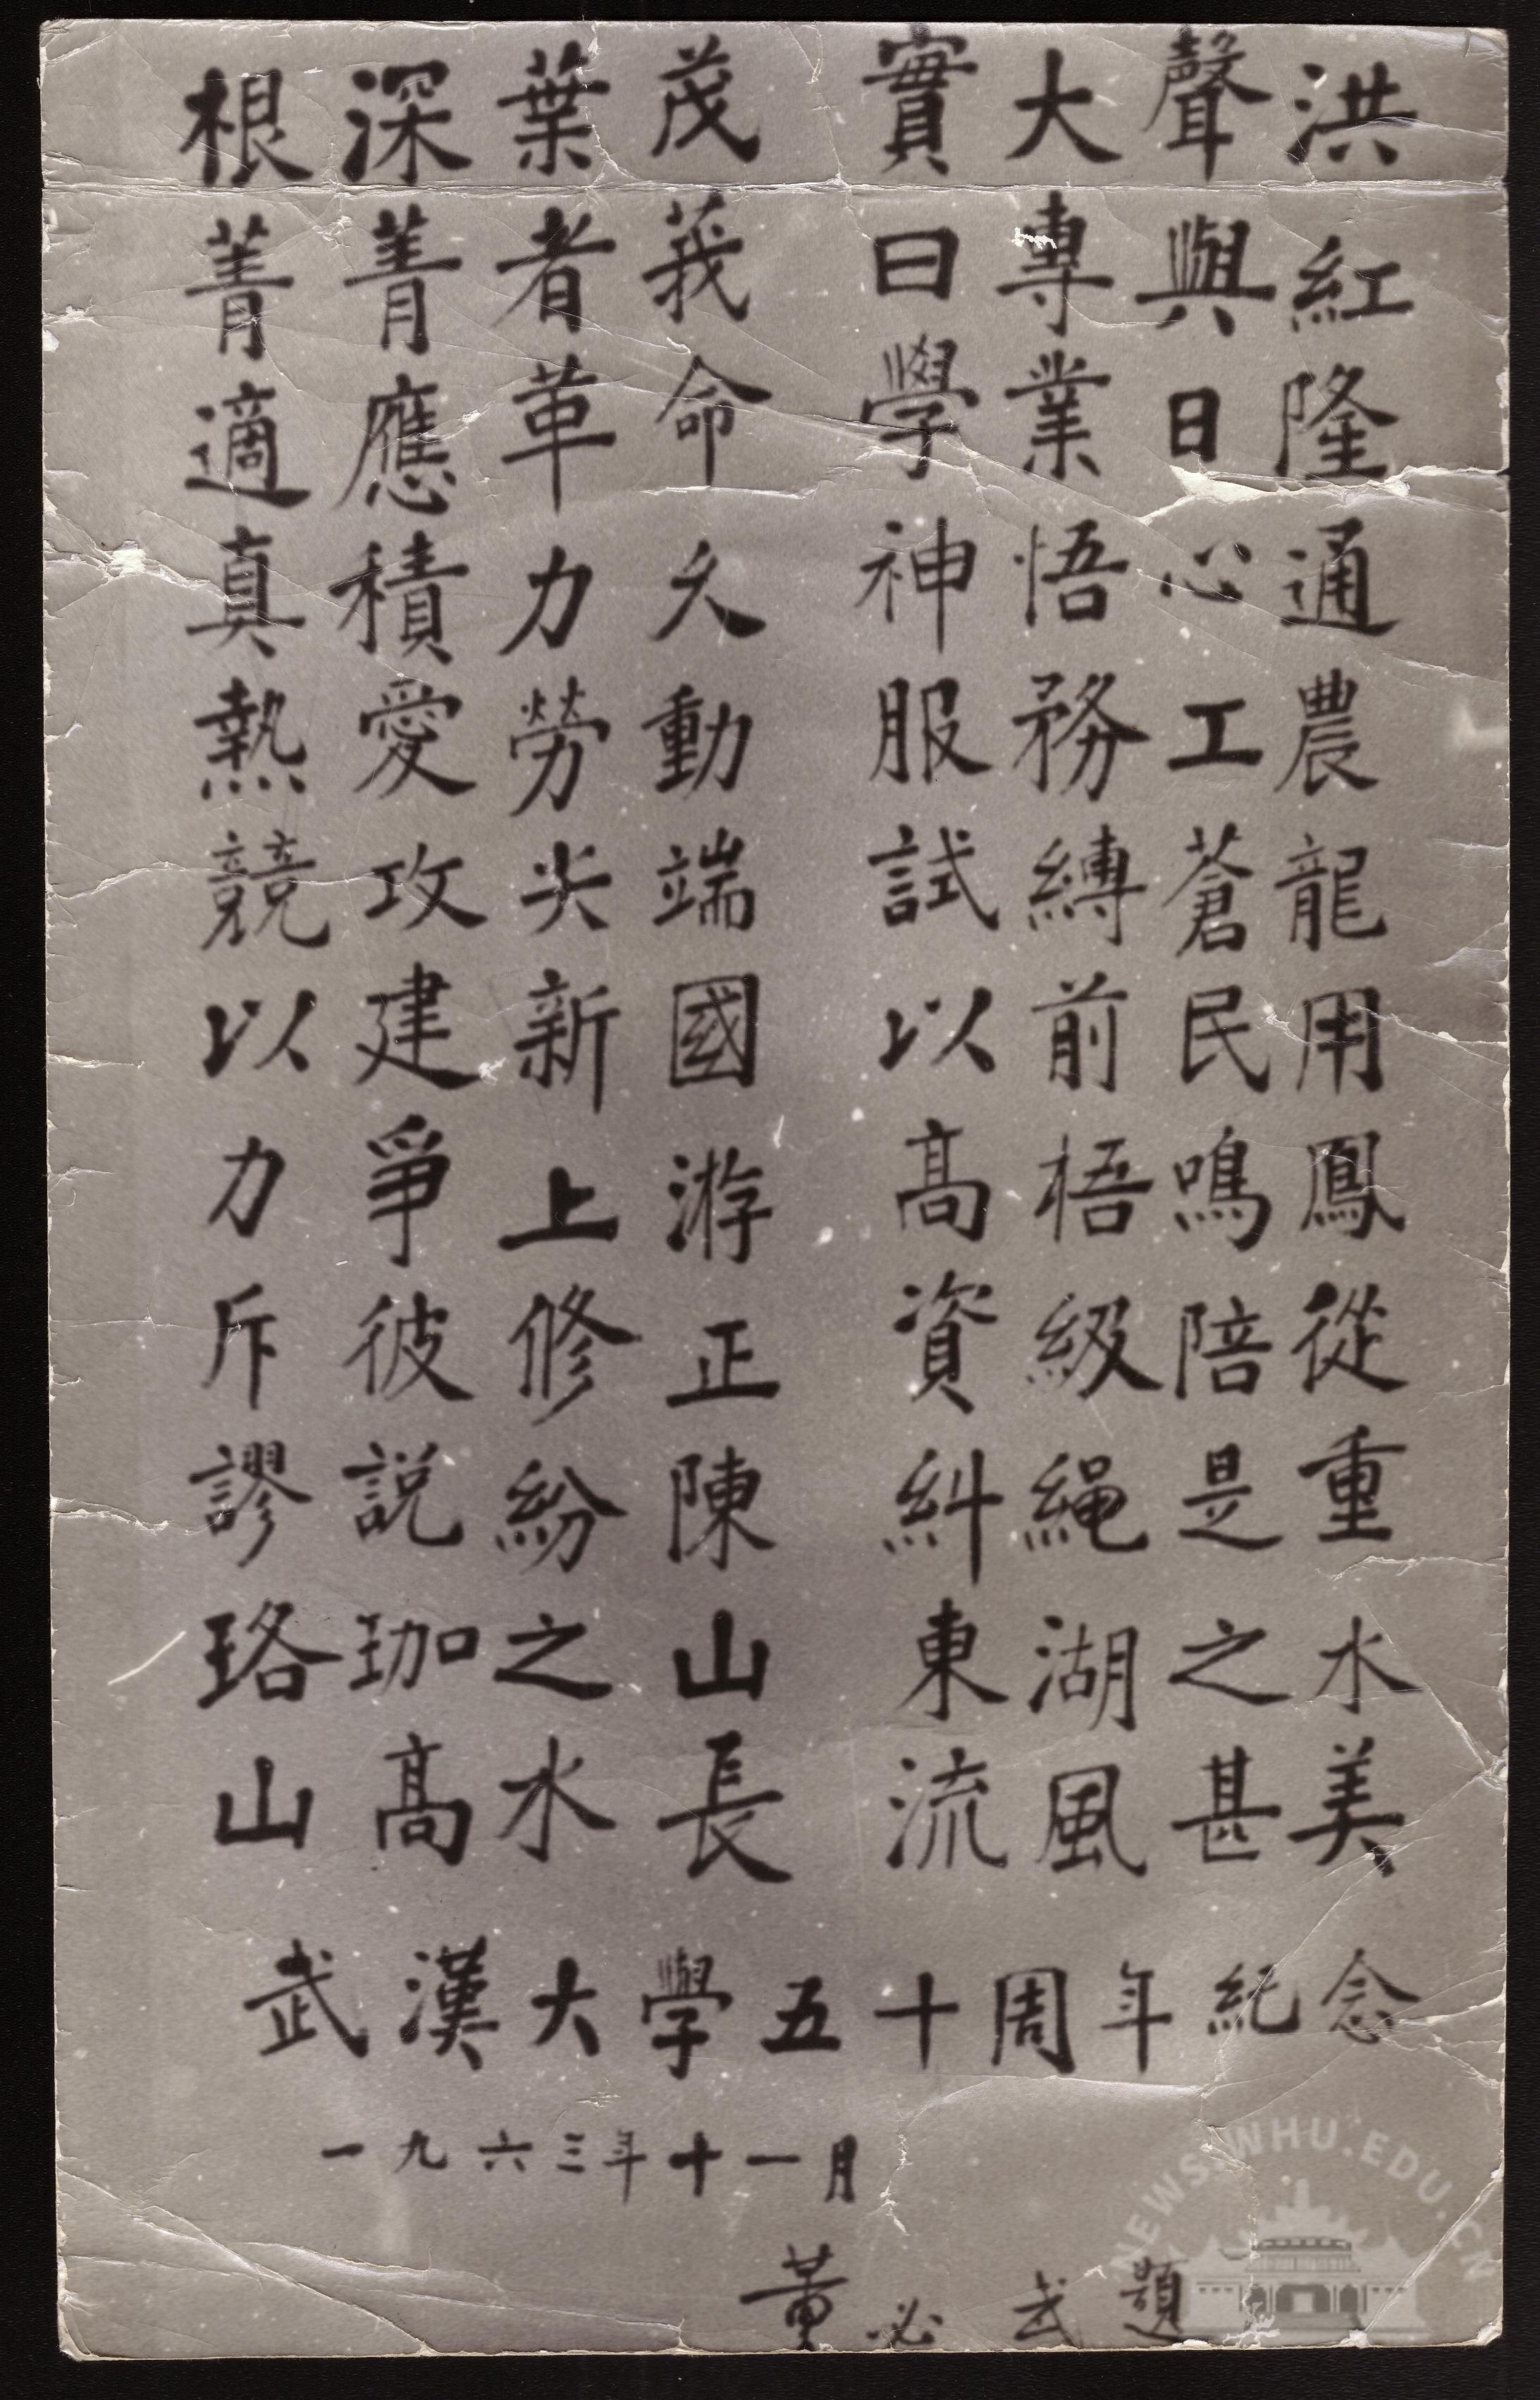 根深葉茂 實大聲洪
菁菁者莪 曰專與紅
適應革命 學業日隆
真積力久 神悟心通
熱愛勞動 服務工農
競攻尖端 試縛蒼龍
以建新國 以前民用
力爭上游 高梧鳴鳳
斥彼修正 資級陪從
謬說紛陳 糾繩是重
珞珈之山 東湖之水
山高水長 流風甚美
武漢大學五十周年紀念
一九六三年十一月
董必武題
NEWS.WHU.EDU.CN